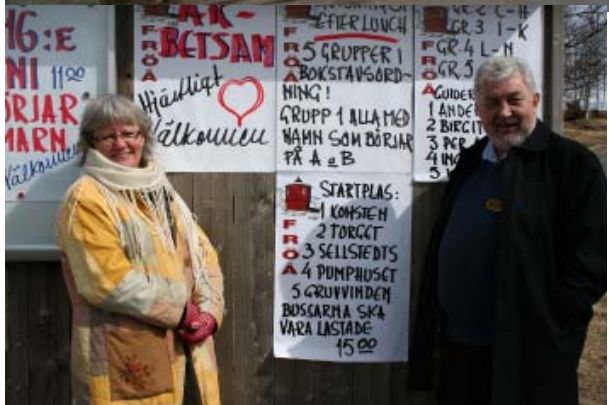 16:E
NI 11 00
ÖRJAR
MARN.
Välkommen
AR-
BETSAM
FRÖÅ
Hjärtligt
Välkommen
EFTER LUNCH
FRÖÅ
5 GRUPPER I
BOKSTAVSORD-
NING!
GRUPP 1 ALLA MED
NAMN SOM BÖRJAR
PÅ A o B
STARTPLAS:
FRÖÅ
1 KONSTEN
2 TORGET
3 SELLSTEDTS
4 PUMPHUSET
5 GRUVVINDEN
BUSSARNA SKA
VARA LASTADE
15 00
GR. 2 C-H
GR. 3 I-K
GR. 4 L-N
GR. 5
FRÖÅ
GUIDER
1 ANDE
2 BIRGIT
3 PER
4 ING
5